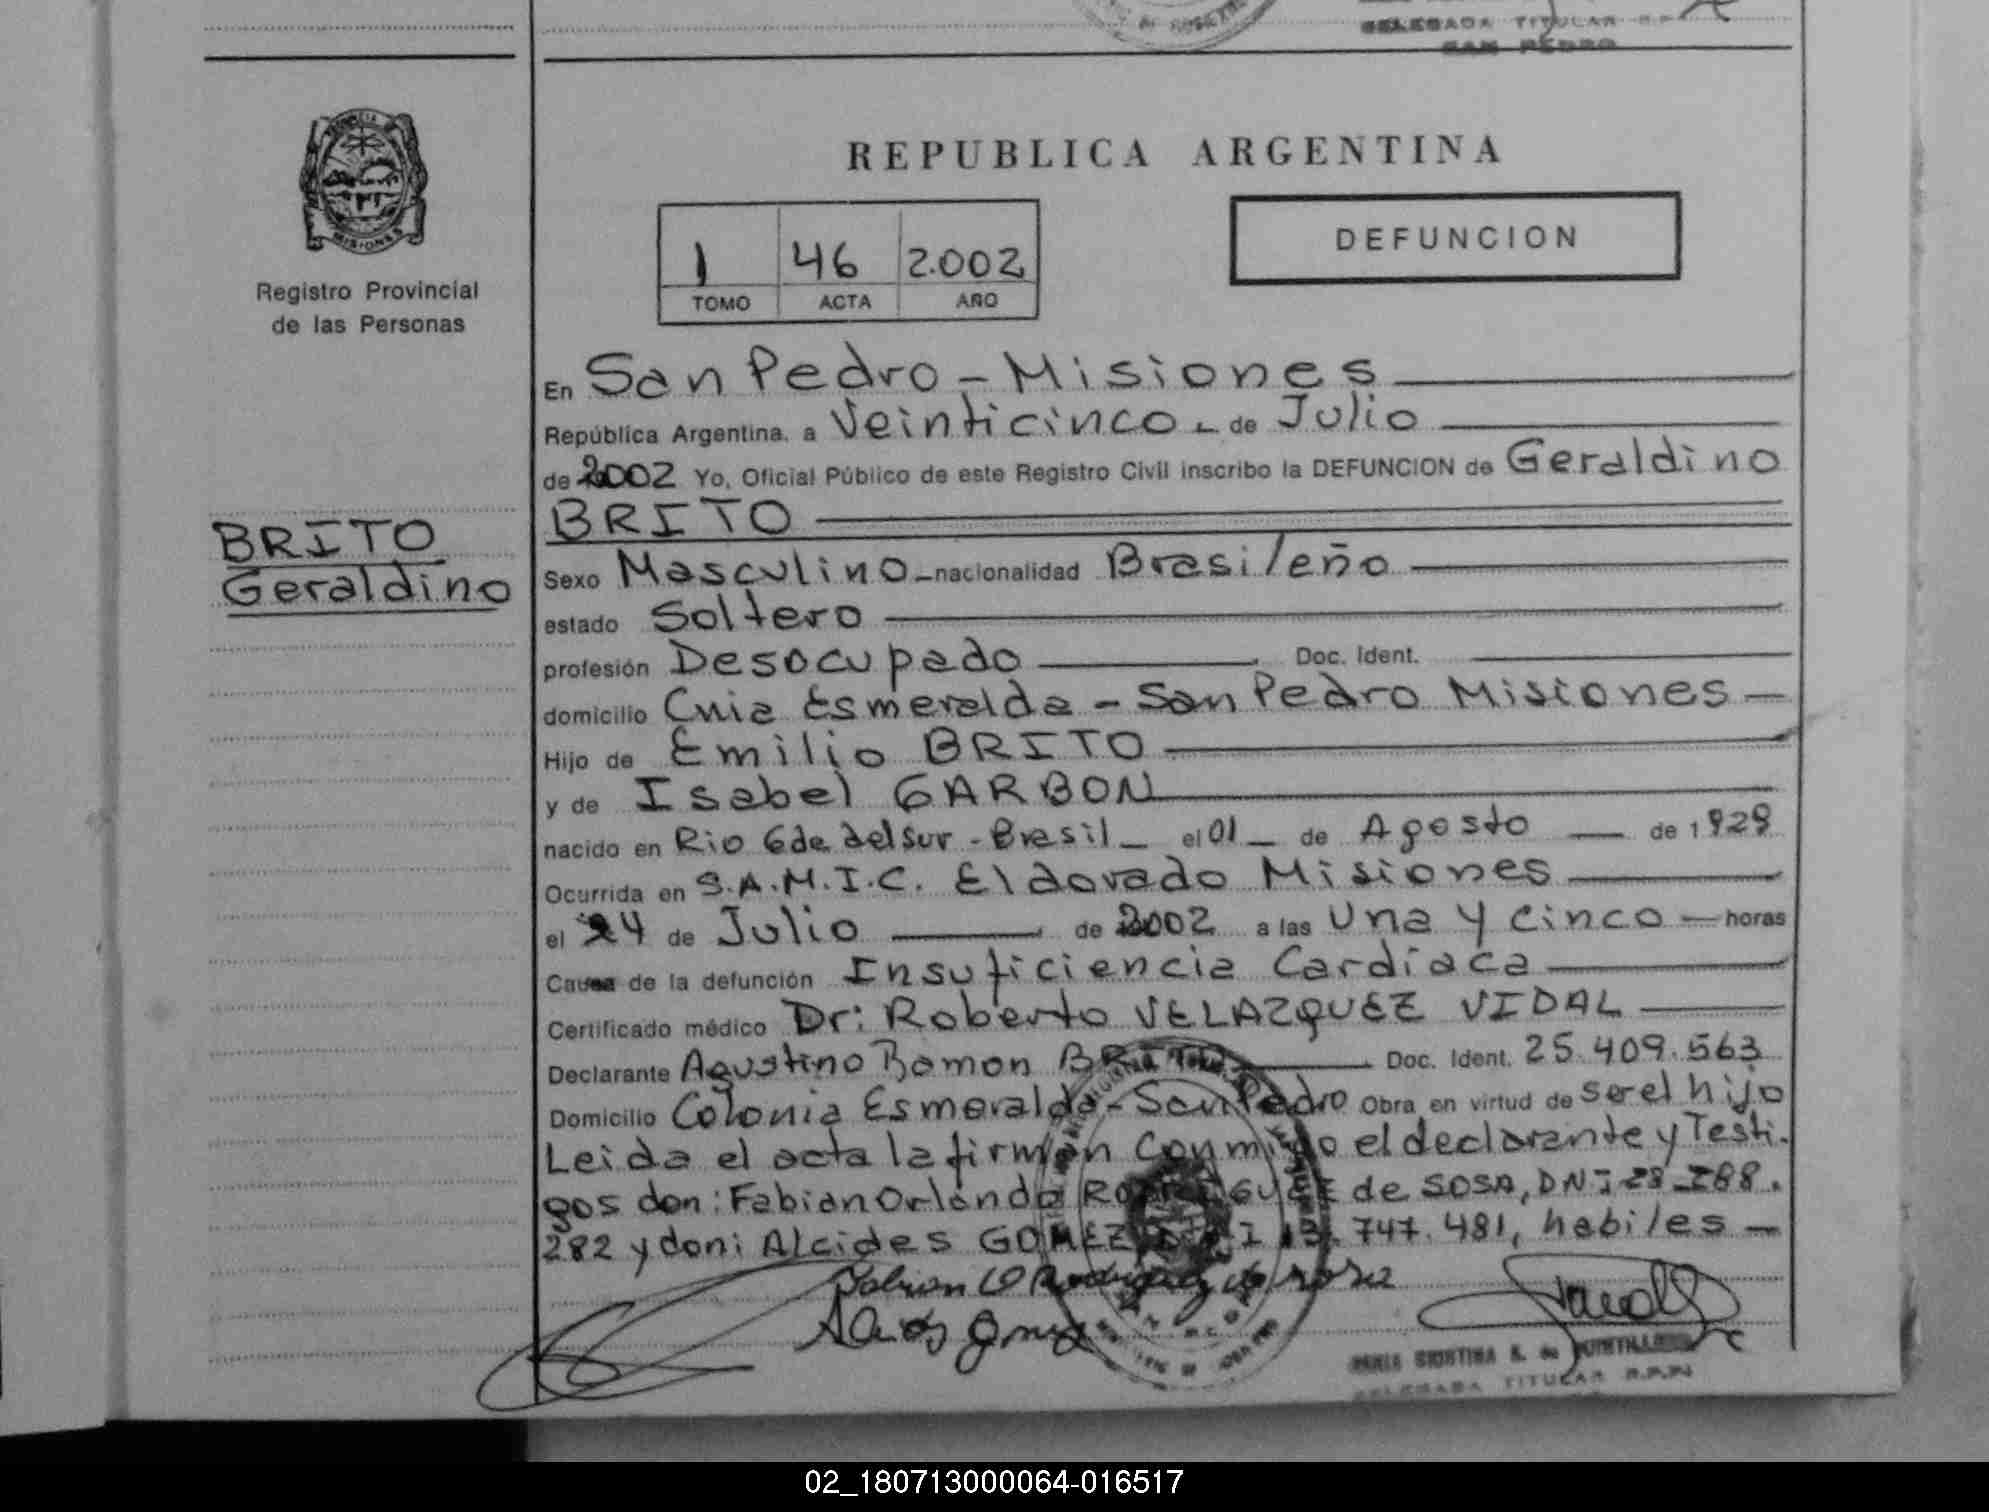 DELEGADA TITULAR R.P.
SAN PEDRO
PROVINCIA DE
MISIONES
Registro Provincial
de las Personas
REPUBLICA ARGENTINA
1 46 2.002
TOMO ACTA AÑO
DEFUNCION
En San Pedro - Misiones
República Argentina, a Veinticinco - de Julio
de 2002 Yo, Oficial Público de este Registro Civil inscribo la DEFUNCION de Geraldino
BRITO
BRITO
Geraldino
Sexo Masculino - nacionalidad Brasileño
estado Soltero
profesión Desocupado Doc. Ident.
domicilio Cnia Esmeralda - San Pedro Misiones -
Hijo de Emilio BRITO
y de Isabel GARBON
nacido en Rio Gde del Sur - Brasil - el 01 - de Agosto - de 1929
Ocurrida en S.A.M.I.C. Eldorado Misiones
el 24 de Julio de 2002 a las Una y Cinco - horas
Causa de la defunción Insuficiencia Cardíaca
Certificado médico Dr: Roberto VELAZQUEZ VIDAL
Declarante Agustino Ramon BRITO Doc. Ident. 25.409.563
Domicilio Colonia Esmeralda - San Pedro Obra en virtud de ser el hijo
Leida el acta la firman Conmigo el declarante y Testi-
gos don: Fabian Orlando RODRIGUEZ de SOSA, DNI 28.288.
282 y don: Alcides GOMEZ DNI 13.747.481, habiles -
Fabian O Rodriguez de sosa
MARIA CRISTINA de
DELEGADA TITULAR R.P.P.
02_180713000064-016517